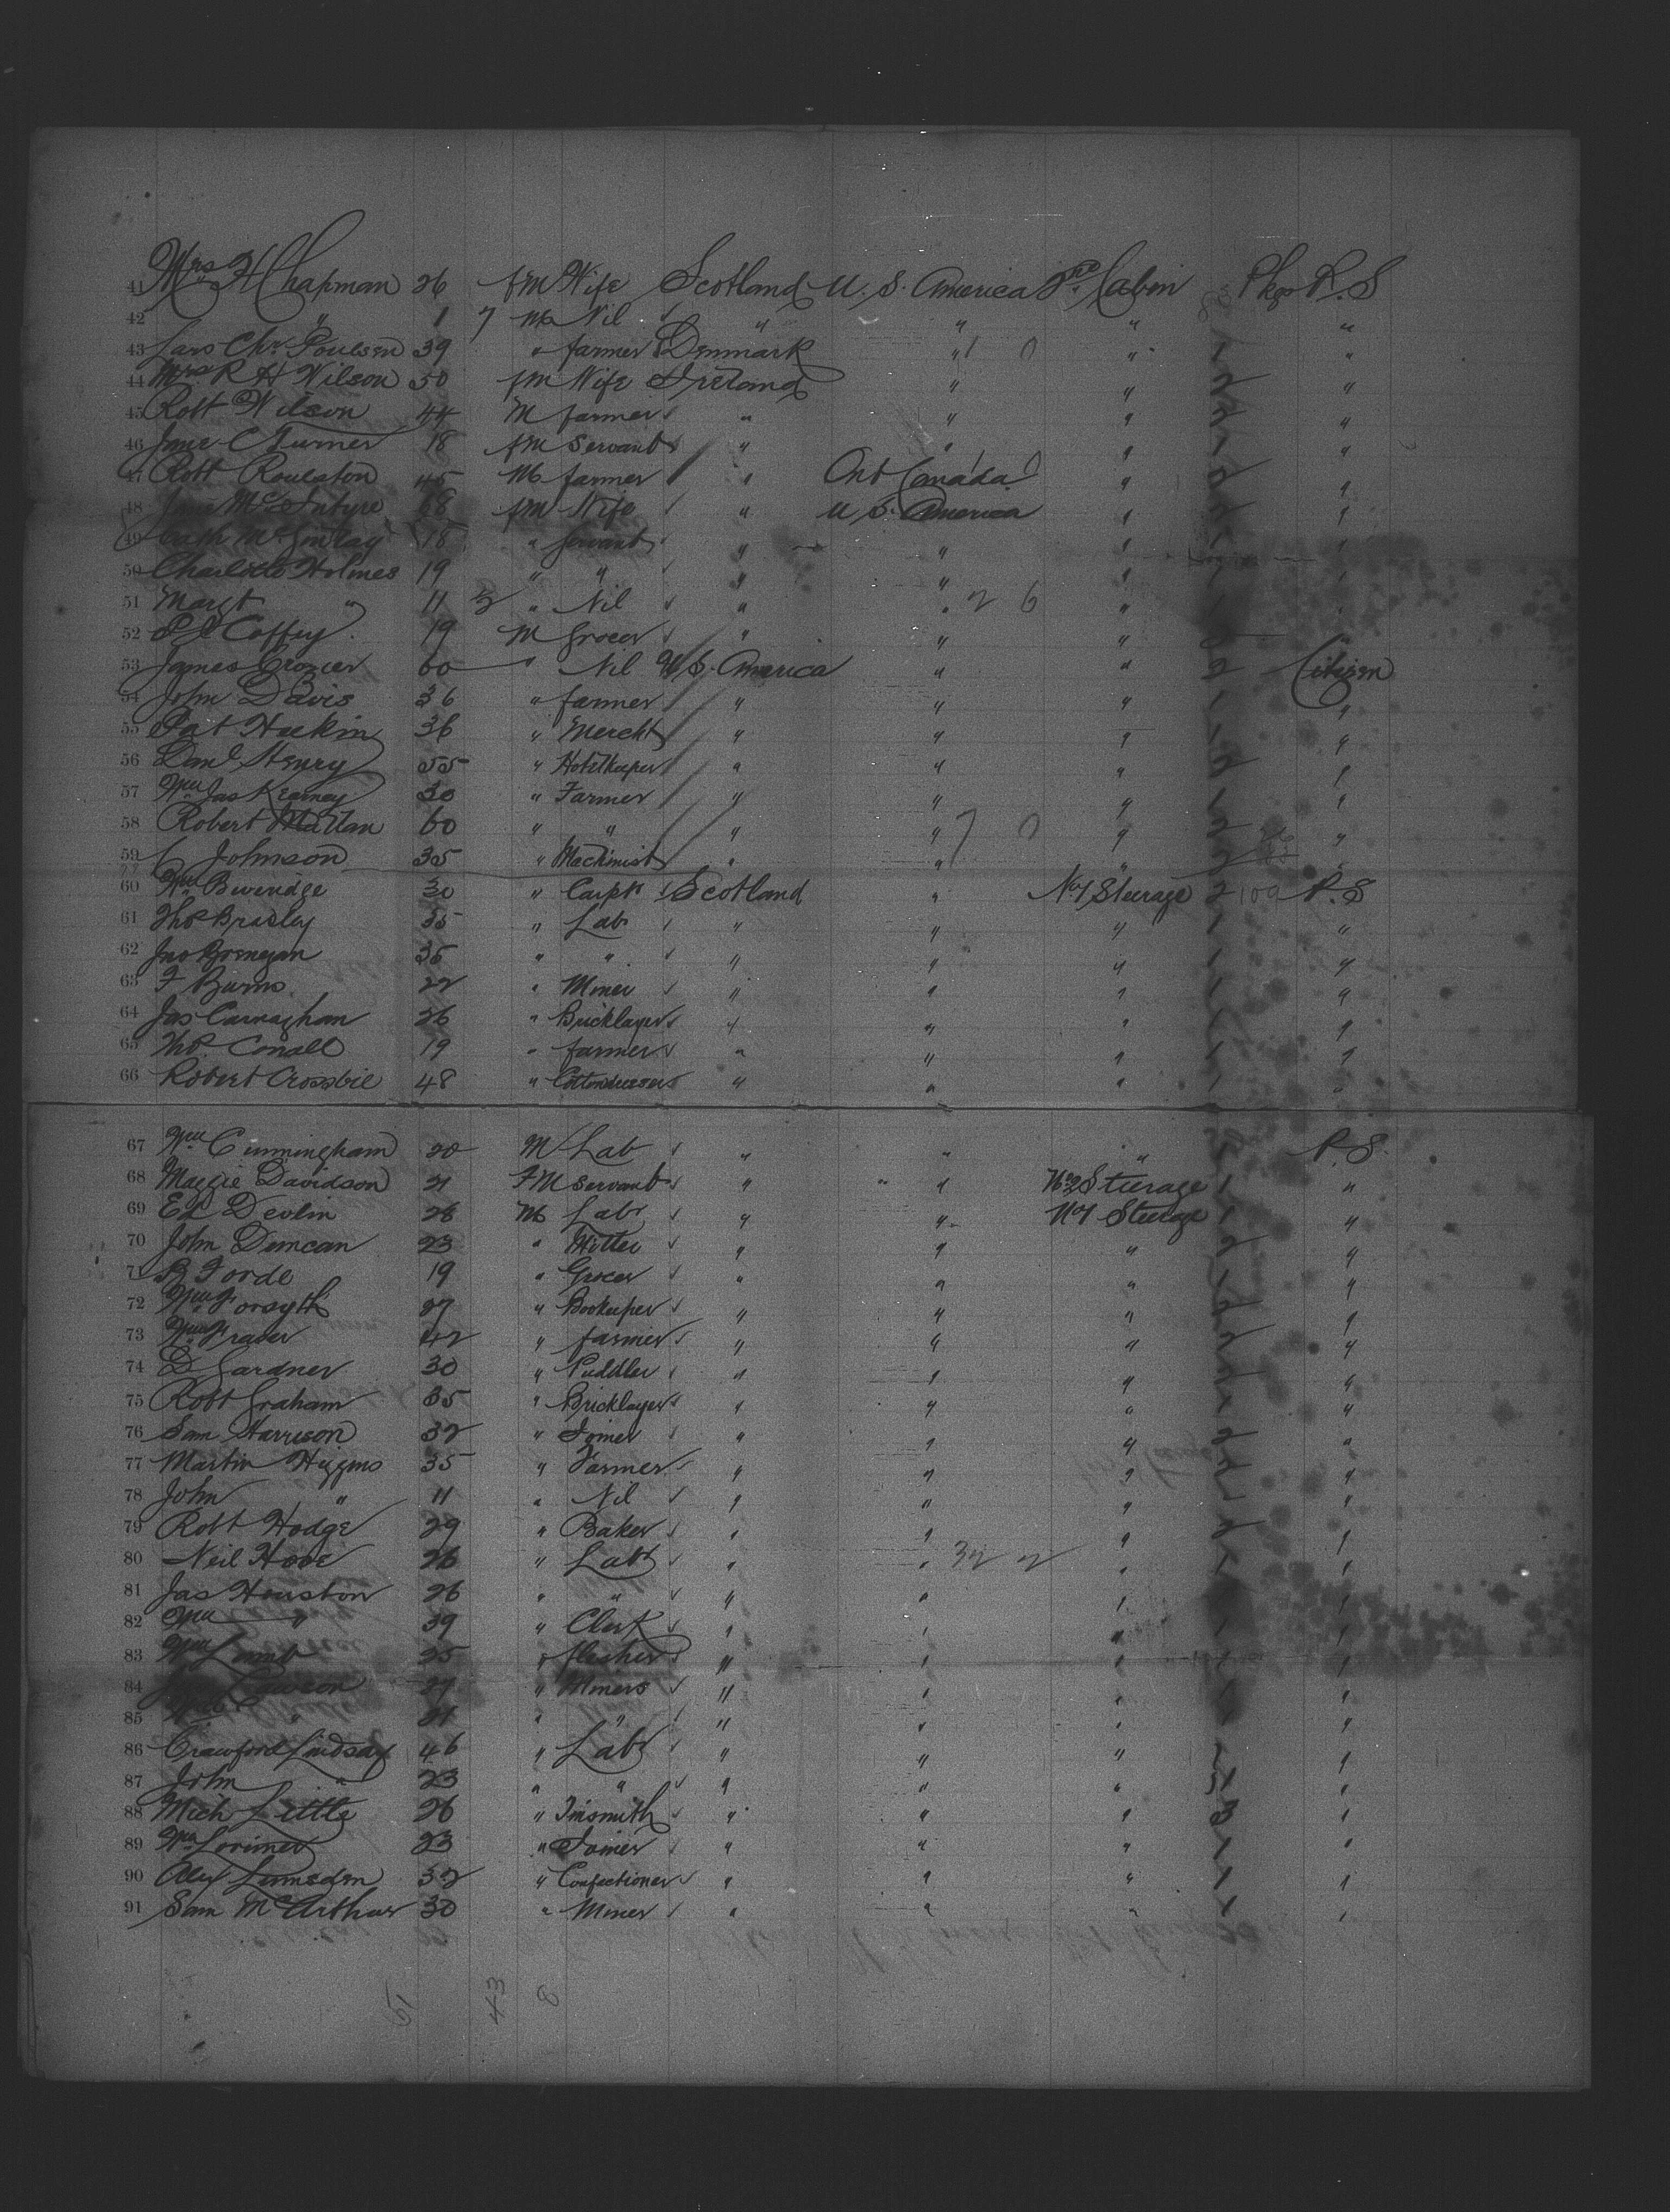 41 Mrs H Chapman 26 fm Wife Scotland U. S. America 2nd Cabin Pkgs P. S
42 " 1 7 M Nil " " " "
43 Lars Chr Poulsen 39 " farmer Denmark " 1 0 " 1 "
44 Mrs R H Wilson 50 fm Wife Ireland " " 2 "
45 Robt Wilson 44 M farmer " " " 2 "
46 Jane C Turner 18 fm Servant " " " 1 "
47 Robt Roulston 45 M farmer " Ont Canada " 2 "
48 Jane McIntyre 68 fm Wife " U S. America " 2 "
49 Cath McGinlay 18 " Servant " " " 1 "
50 Charlotte Holmes 19 " " " " " 1 "
51 Margt " 11 " Nil " " 2 6 " 1 "
52 P J Coffey 19 M Grocer " " " "
53 James Crozier 60 " Nil U S. America " " 2 Citizen
54 John Davis 36 " farmer " " " 1 "
55 Pat Hackin 36 " Mercht " " " 1 "
56 Danl Henry 55 " Hotelkeeper " " " 2 "
57 Wm Jas Kearney 30 " Farmer " " " 1 "
58 Robert Mattan 60 " " " " 7 0 " 2 "
59 C Johnson 35 " Machinist " " " 2 "
60 Wm Beveridge 30 " Carptr Scotland " No 1 Steerage 2 P. S
61 Thos Bradley 35 " Labr " " " 1 "
62 Jno Bornegan 35 " " " " " 1 "
63 F Burns 22 " Miner " " " 1 "
64 Jas Carnaghan 26 " Bricklayer " " " 1 "
65 Thos Conall 19 " farmer " " " 1 "
66 Robert Crossbie 48 " Cottondresser " " " 1 "
67 Wm Cunningham 20 M Lab " " " P. S.
68 Maggie Davidson 21 FM Servant " " " No 2 Steerage 1 "
69 Ed Devlin 26 M Labr " " No 1 Steerage 1 "
70 John Duncan 23 " " " " 2 "
71 R Forde 19 " Grocer " " " 1 "
72 Wm Forsyth 27 " Bookeeper " " " 2 "
73 Wm Fraser 42 " farmer " " " 2 "
74 D Gardner 30 " Puddler " " " 2 "
75 Robt Graham 35 " Bricklayer " " " 1 "
76 Sam Harrison 32 " Joiner " " " 2 "
77 Martin Higgins 35 " Farmer " " " 2 "
78 John " 11 " Nil " " " 1 "
79 Robt Hodge 29 " Baker " " " 2 "
80 Neil Hove 26 " Labr " " 32 2 " 1 "
81 Jas Houston 26 " " " " " "
82 Wm " 39 " Clerk " " " 1 "
83 Wm Lamb 25 " flesher " " " 1 "
84 Lawson 27 " Miners " " " 1 "
85 " 21 " " " " " "
86 Crawford Lindsay 46 " Labr " " " "
87 John " 23 " " " " " "
88 Mich Little 26 " Tinsmith " " " 3 "
89 Wm Lorimer 23 " Joiner " " " 1 "
90 Alex Lumsden 32 " Confectioner " " " 1 "
91 Sam McArthur 30 " Miner " " " 1 "
51 43 8